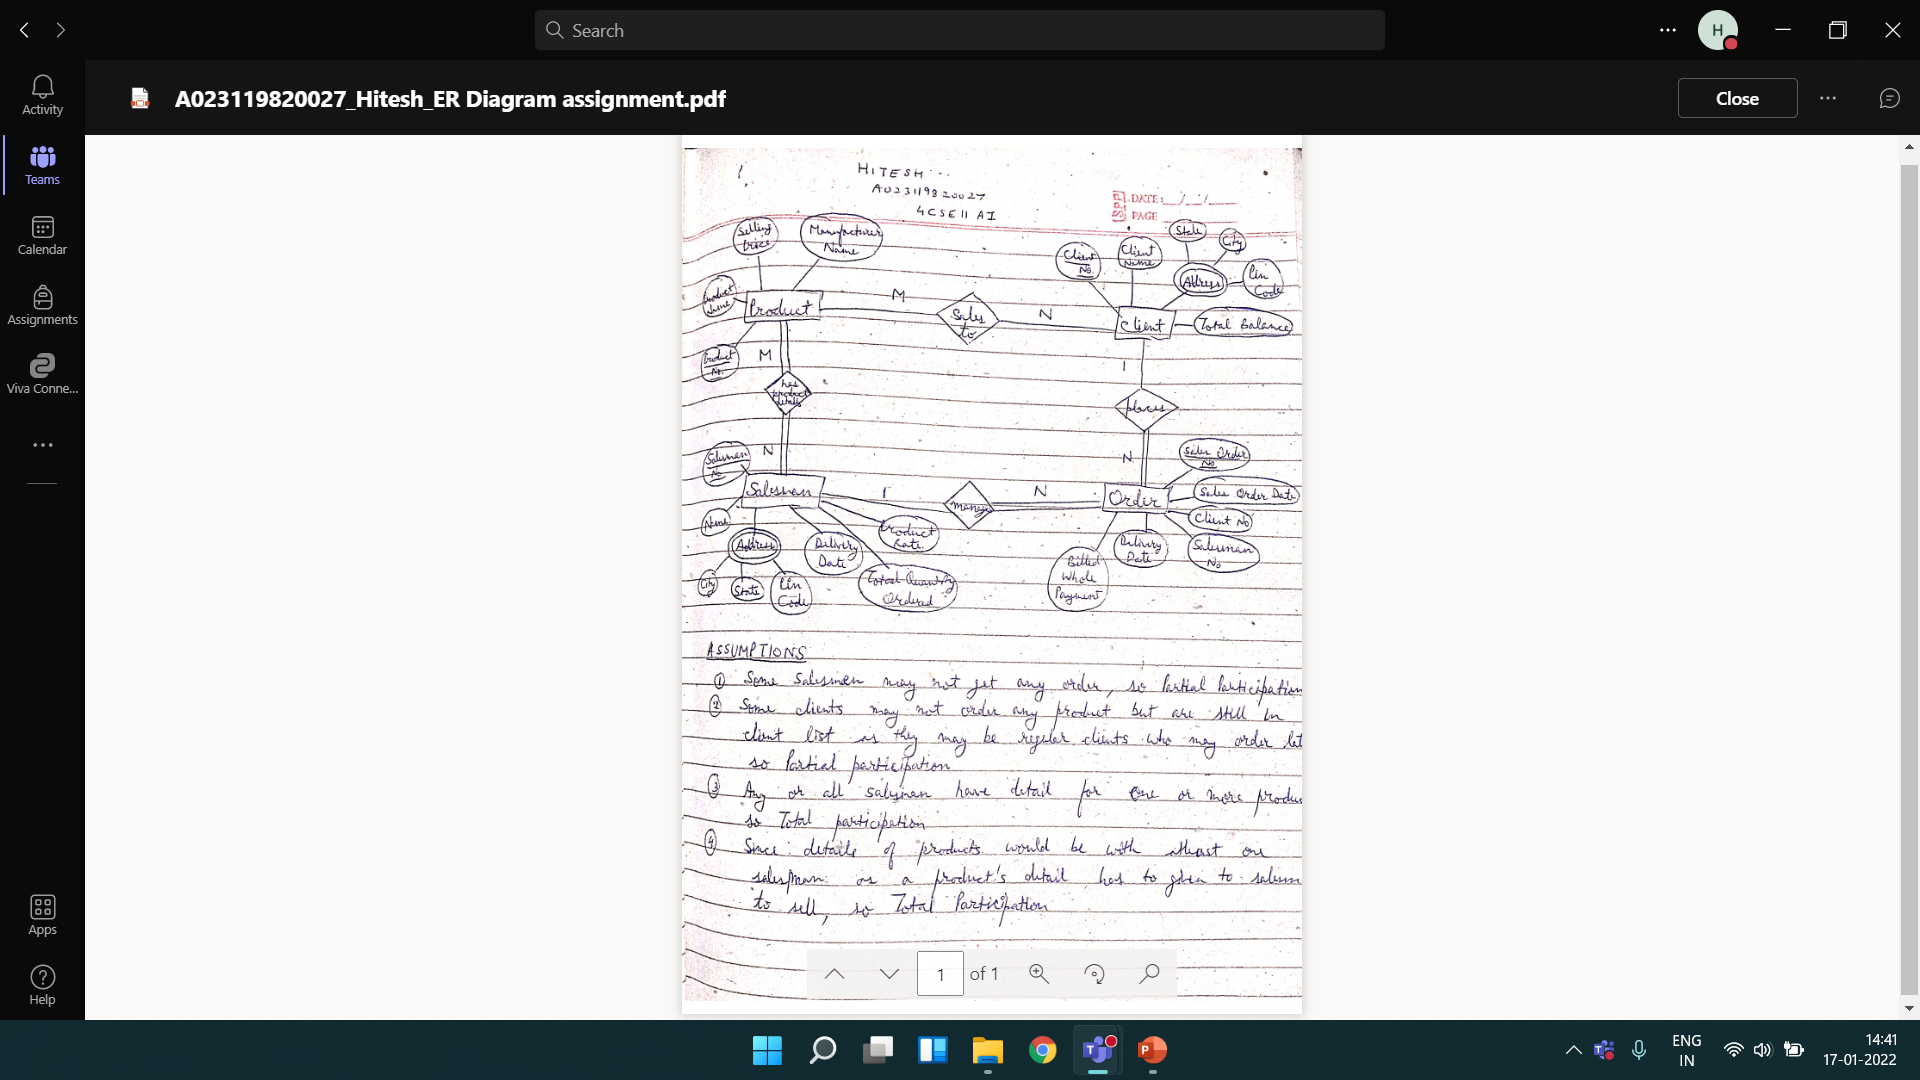 Search
H
Activity
Teams
Calendar
Assignments
Viva Conne...
Apps
Help
A023119820027_Hitesh_ER Diagram assignment.pdf
Close
1
HITESH
A023119820027
4CSE11 AI
SPP
DATE: _/_/_
PAGE
Selling Price
Manufacturer Name
Product Name
Product No.
Product
M
Sales to
N
Client No.
Client Name
State
City
Address
Pin Code
Client
Total Balance
M
has product details
N
1
places
N
Salesman No
Salesman
1
manage
N
Order
Sales Order No
Sales Order Date
Client No
Salesman No
Delivery Date
Billed Whole Payment
Name
Address
City
State
Pin Code
Delivery Date
Product Rate
Total Quantity Ordered
ASSUMPTIONS
① Some Salesman may not get any order, so Partial Participation
② Some clients may not order any product but are still in
client list as they may be regular clients who may order lat
so Partial participation
③ Any or all salesman have detail for one or more produc
so Total participation
④ Since details of products would be with atleast one
salesman as a product's detail has to given to salesm
to sell, so Total Participation
1 of 1
ENG
IN
14:41
17-01-2022